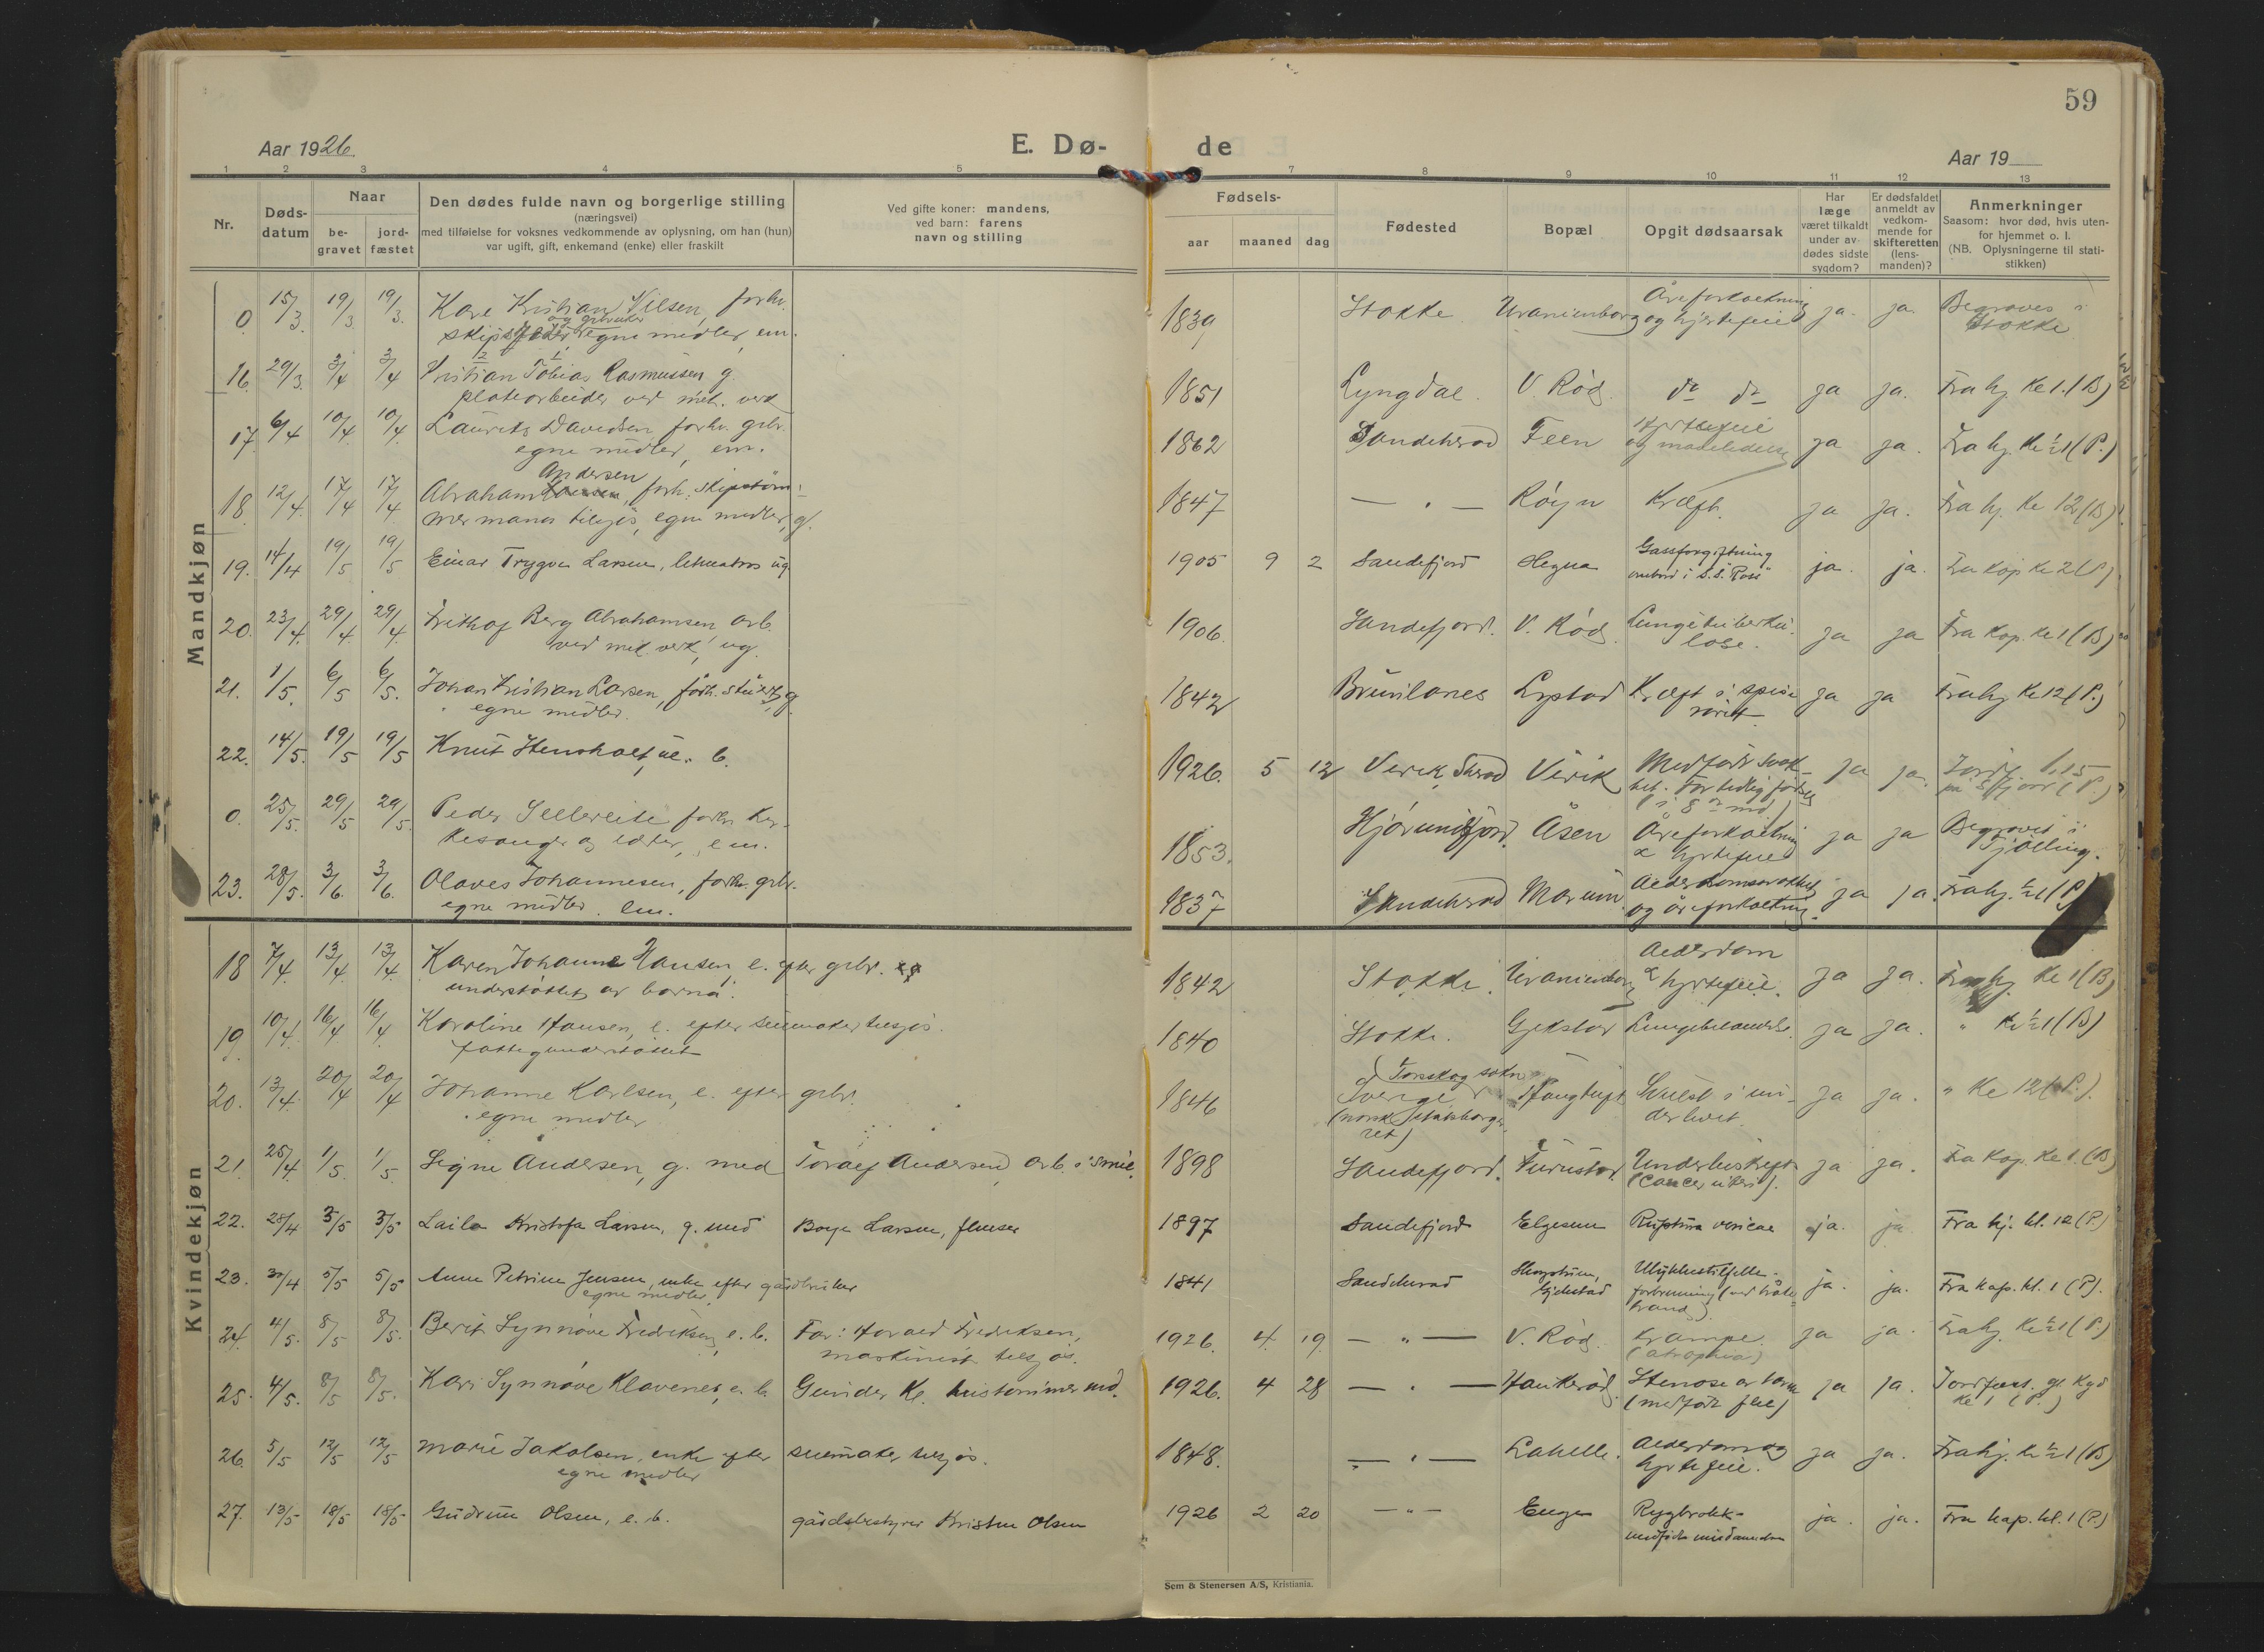 59
Aar 1926.
E. Dø-
de
Aar 19
1 2 3 4 5 7 8 9 10 11 12 13
Nr.
Døds-
datum
Naar
be-
gravet
jord-
fæstet
Den dødes fulde navn og borgerlige stilling
(næringsvei)
med tilføielse for voksnes vedkommende av oplysning, om han (hun)
var ugift, gift, enkemand (enke) eller fraskilt
Ved gifte koner: mandens,
ved barn: farens
navn og stilling
Fødsels-
aar maaned dag
Fødested
Bopæl
Opgit dødsaarsak
Har
læge
været tilkaldt
under av-
dødes sidste
sygdom?
Er dødsfaldet
anmeldt av
vedkom-
mende for
skifteretten
(lens-
manden)?
Anmerkninger
Saasom: hvor død, hvis uten-
for hjemmet o. l.
(NB. Oplysningerne til stati-
stikken)
Mandkjøn
0. 15/3 19/3. 19/3. Kare Kristian Nilsen, forhv. 1839 Stokke Uranienborg Åreforkalkning ja. ja. Begraves i
og grbruker
egne midler, em. og hjertefeil Stokke
16. 29/3. 3/4 3/4 Kristian Tobias Rasmussen g. 1851 Lyngdal. V. Rød. do do ja ja. Fra hj. kl 1. (B)
platearbeider ved mek. verk
17. 6/4 10/4. 10/4. Laurits Davidsen forhv. grbr. 1862 Sandeherad Feen Hjertefeil ja ja. Fra hj. kl ½1 (P.)
egne midler, em. og
18. 12/4. 17/4 17/4 Abraham Andersen, forh. skipstøm- 1847 — " — Röyn Kræft. ja ja. Fra hj. kl 12 (B)
mermand tilsjös, egne midler, g.
19. 14/4 19/5 19/5 Einar Trygve Larsen, letmatros ug. 1905 9 2 Sandefjord Hegna Gassforgiftning ja. ja. Fra kap kl 2 (P)
ombord i S.S. "Ross"
20. 23/4. 29/4. 29/4. Frithof Berg Abrahamsen arb. 1906. Sandefjord. V. Rød. Lungetuberku- ja ja Fra kap. kl 1 (B)
ved mek. verk, ug. lose.
21. 1/5. 6/5 6/5. Johan Kristian Larsen, forh. stuert, g. 1842 Brunlanes Lystad Kræft i spise- ja ja Fra hj kl 12 (P.)
egne midler. röret
22. 14/5. 19/5 19/5 Knut Stensholt, u. b. 1926. 5 12 Virik, Shrad Virik Medfødt svak- ja ja. Jordf.
het. For tidlig fødsel
(i 8de md)
0. 25/5. 29/5 29/5. Peder Sellereite forhv. kir- 1853. Hjörundfjord. Åsen Åreforkalkning ja ja Begravet i
kesanger og lærer, em. & hjertefeil Tjölling.
23. 28/5. 3/6. 3/6. Olaves Johannesen, forhv. grbr. 1837 Sandeherad Marum Alderdomssvakhet ja ja. Fra hj. ½1 (P)
egne midler. em. og åreforkalkning.
Kvindekjøn
18 7/4. 13/4. 13/4. Karen Johanne Hansen, e. efter grbr. 1842 Stokke. Uranienborg Alderdom ja ja. Fra hj. kl 1 (B)
understøttet av barna. & hjertefeil.
19 10/4. 16/4 16/4 Karoline Hansen, e. efter seilmaker tilsjös. 1840 Stokke. Gjekstad Lungebetændelse. ja ja. " kl ½1 (B)
fattigunderstøttet
20. 13/4. 20/4 20/4 Johanne Karlsen, e. efter grbr. 1846 (Torskog sokn Svulst i un- ja ja. " Kl 12 (P.).
egne midler Sverige derlivet.
(norsk statsborger-
ret)
21. 25/4. 1/5. 1/5. Signe Andersen, g. med Toralf Andersen, arb. i smie. 1898 Sandefjord. Furustad. Underlivskreft ja ja. Fra kap. kl 1. (B)
(cancer uteri).
22. 28/4 3/5 3/5 Laila Kristofa Larsen, g. med Borge Larsen, flenser 1897 Sandefjord Elgesem Ruptura vesicae ja. ja Fra hj. kl. 12 (P)
23. 30/4 5/5 5/5 Anne Petrine Jensen, enke efter gårdbruker 1841 Sandeherad Gjekstad Ulykkestilfelle- ja. ja. Fra kap. kl. 1 (P).
egne midler. forbrenning (ved bråte-
brand).
24. 4/5. 8/5 8/5. Berit Synnøve Fredriksen, e. b. Far: Harald Fredriksen, 1926. 4. 19. — " — V. Rød. Krampe ja ja. Fra hj. kl ½1 (P)
maskinist tilsjös. (atrophia)
25. 4/5. 8/5 8/5. Kari Synnøve Klavenes, e. b. Gunder Kl. hustømmermd. 1926. 4 28 — " — Haukerød. Stenose av tarm ja ja. Jordfæst. gl. kgd
(medfødt feil) kl 1 (P.)
26. 5/5 12/5 12/5 Marie Jakobsen, enke efter seilmaker tilsjös. 1848. — " — Lahelle. Alderdom og ja ja. Fra hj. kl ½1 (B)
egne midler hjertefeil.
27. 13/5 18/5 18/5 Gudrun Olsen, e. b. gårdsbestyrer Kristen Olsen 1926 2 20 — " — Enga Rygbrokk- ja. ja. Fra kap. kl. 1 (P.)
medfødt misdannelse
Sem & Stenersen A/S, Kristiania.